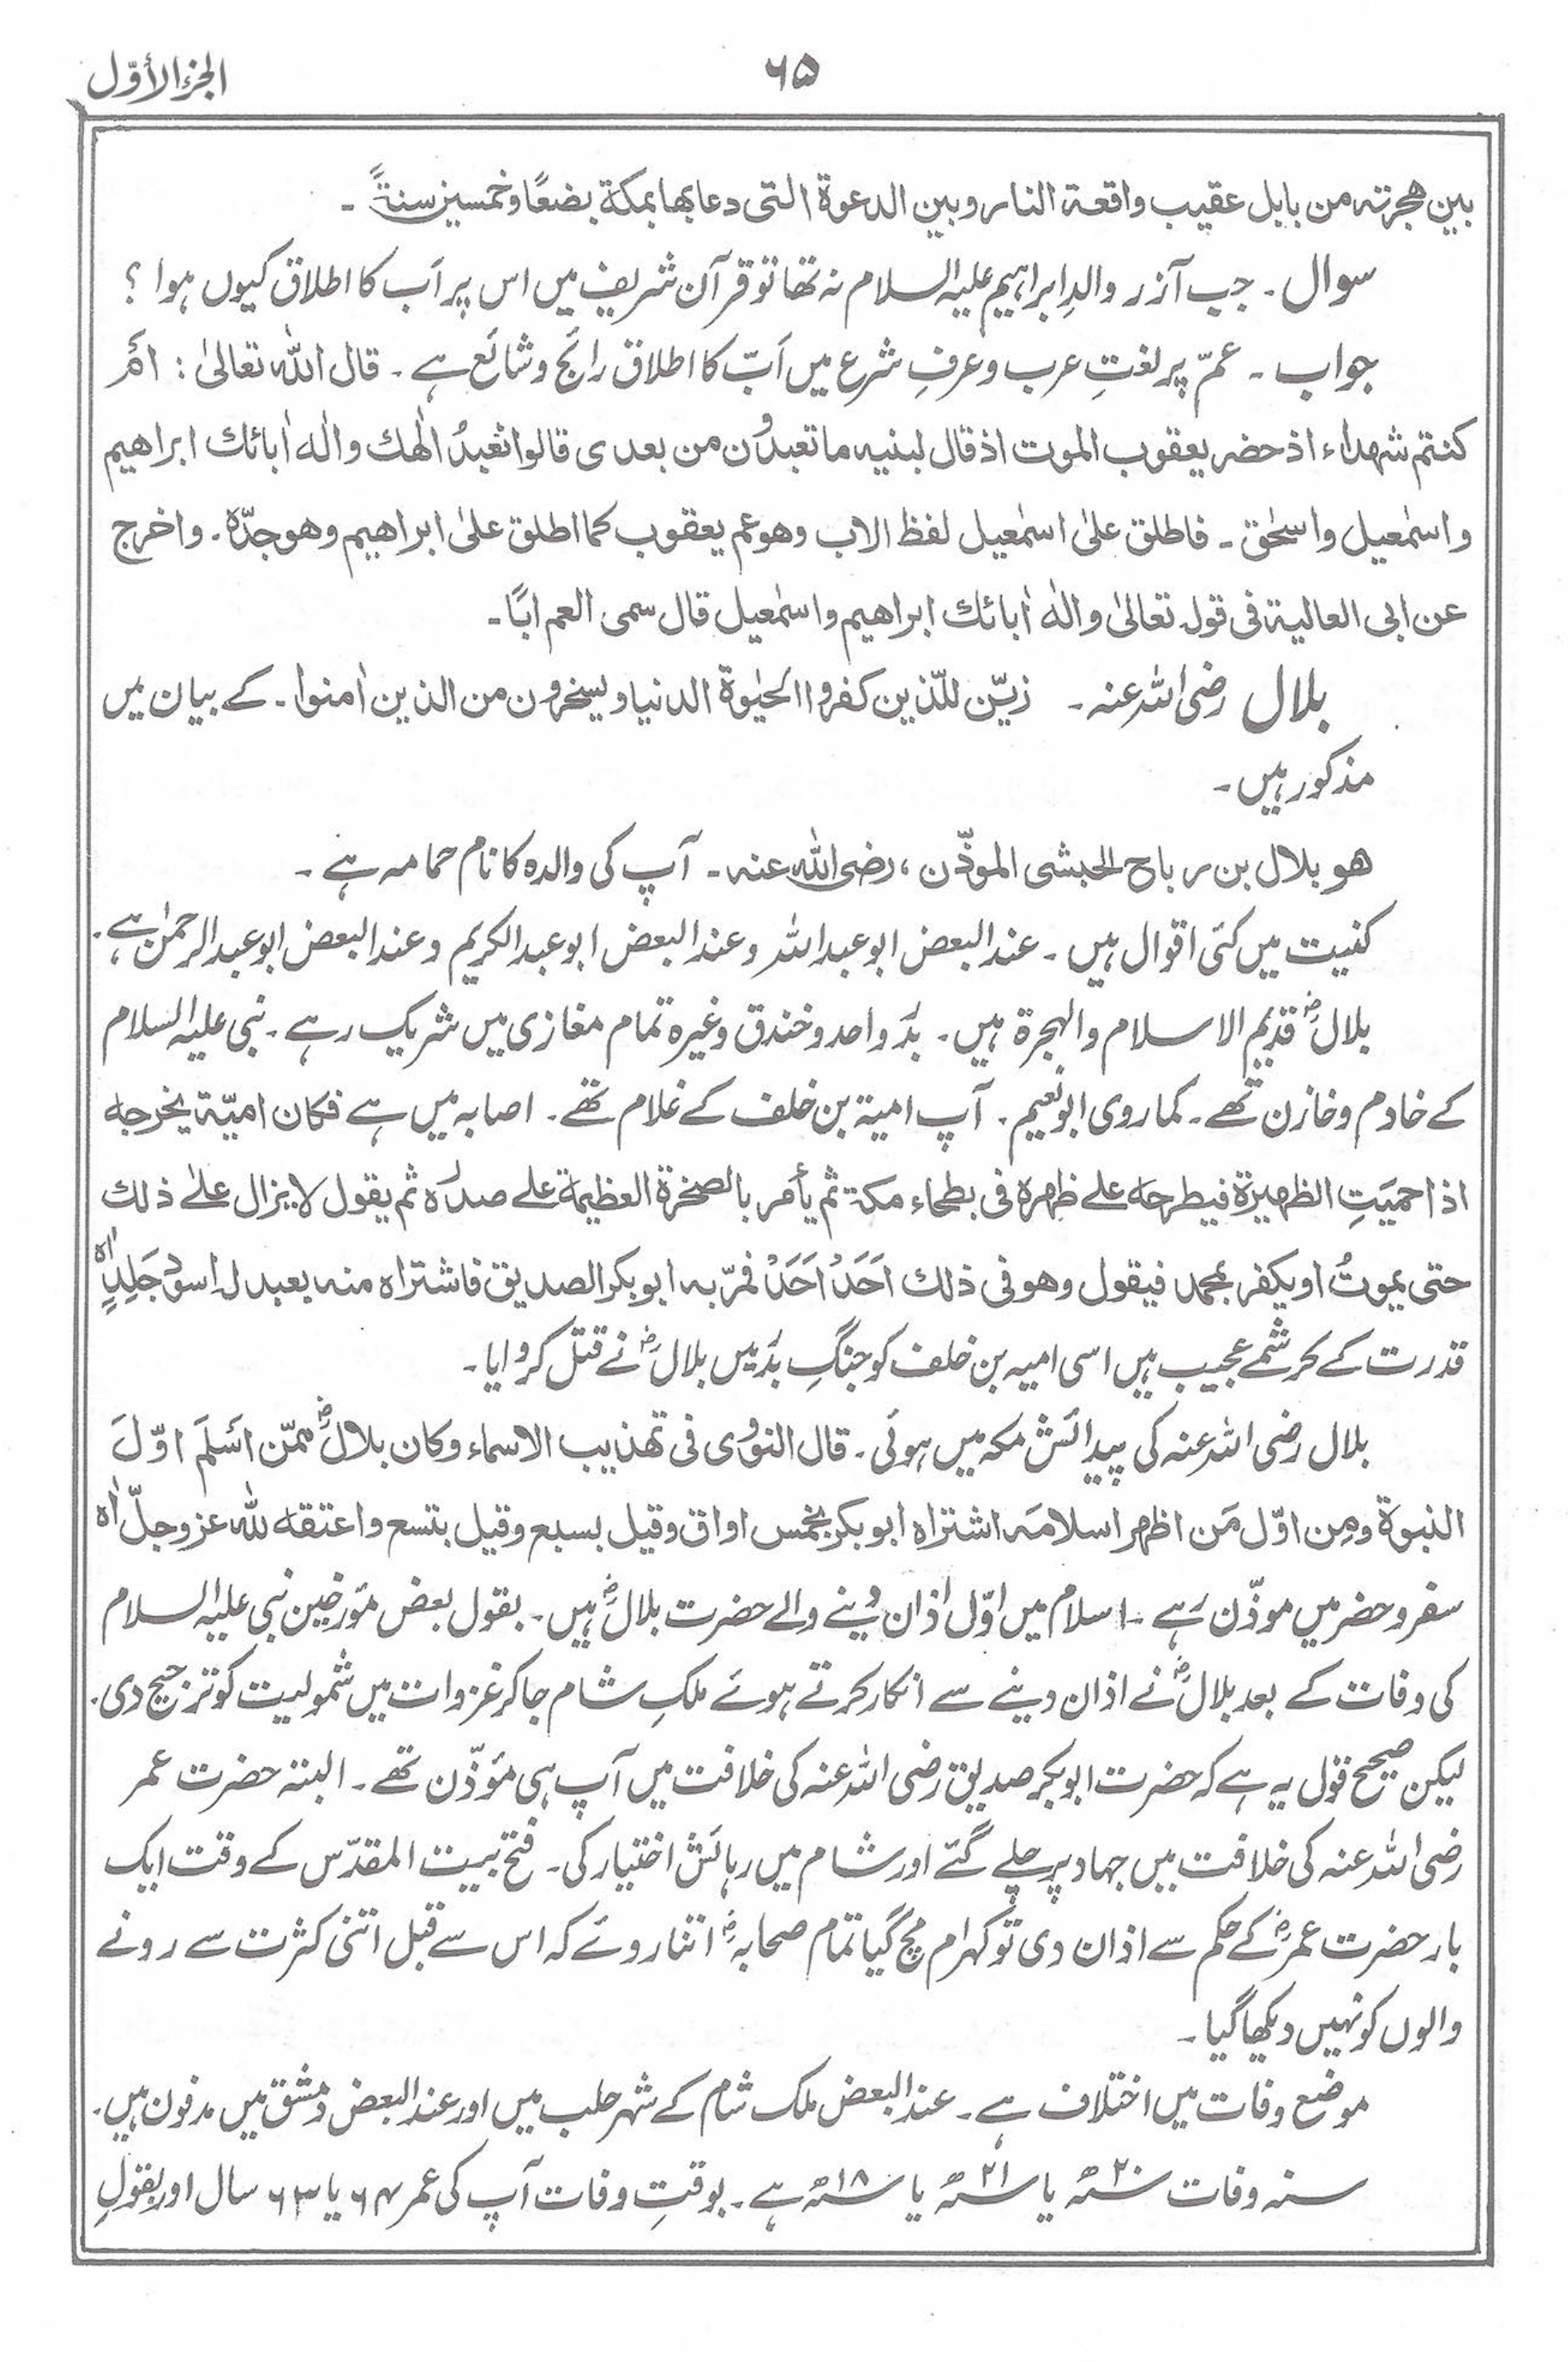 الجزء الأوّل
۶۵
بین هجرته من بابل عقیب واقعة النار وبین الدعوة التی دعا بها بمکة بضعًا وخمسین سنةً ۔
سوال ۔ جب آزر والدِ ابراہیم علیہ السلام نہ تھا تو قرآن شریف میں اس پر اَب کا اطلاق کیوں ہوا ؟
جواب ۔ عمّ پر لغتِ عرب و عرفِ شرع میں اَبّ کا اطلاق رائج و شائع ہے ۔ قال اللّٰہ تعالیٰ : اَم
کنتم شہداء اذ حضر یعقوب الموت اذ قال لبنیہ ما تعبدون من بعدی قالوا نعبدُ الٰھک والٰہ اٰبائك ابراھیم
واسمٰعیل واسحٰق ۔ فاطلق علیٰ اسمٰعیل لفظ الاب وھو عم یعقوب کما اطلق علیٰ ابراھیم وھو جدّہ ۔ واخرج
عن ابی العالیة فی قولہ تعالیٰ والٰہ اٰبائك ابراھیم واسمٰعیل قال سمی العم ابًا ۔
بلال رضی اللہ عنہ ۔ زیّن للّذین کفروا الحیٰوة الدنیا ویسخرون من الذین اٰمنوا ۔ کے بیان میں
مذکور ہیں ۔
ھو بلال بن رباح الحبشی الموذّن ، رضی اللّٰہ عنہ ۔ آپ کی والدہ کا نام حمامہ ہے ۔
کنیت میں کئی اقوال ہیں ۔ عند البعض ابو عبد اللہ وعند البعض ابو عبد الکریم وعند البعض ابو عبد الرحمٰن ہے ۔
بلالؓ قدیم الاسلام والہجرۃ ہیں ۔ بدر واحد و خندق وغیرہ تمام مغازی میں شریک رہے ۔ نبی علیہ السلام
کے خادم و خازن تھے ۔ کما روی ابو نعیم ۔ آپ امیۃ بن خلف کے غلام تھے ۔ اصابہ میں ہے فکان امیّة یخرجہ
اذا حمیَتِ الظھیرة فیطرحہ علے ظھرہ فی بطحاء مکة ثم یأمر بالصخرة العظیمة علے صدرہ ثم یقول لا یزال علےٰ ذلك
حتی یموتُ او یکفر بمحمد فیقول وھو فی ذلك اَحَدٌ اَحَدٌ فمرّ بہ ابو بکر الصدیق فاشتراہ منہ بعبد لہ اسود جَلِدٍ اٰہ
قدرت کے کرشمے عجیب ہیں اسی امیہ بن خلف کو جنگِ بدر میں بلالؓ نے قتل کروایا ۔
بلال رضی اللہ عنہ کی پیدائش مکہ میں ہوئی ۔ قال النووی فی تھذیب الاسماء وکان بلالؓ ممّن اَسْلَمَ اوّلَ
النبوة ومِن اوّل مَن اظھر اسلامَہ اشتراہ ابو بکر بخمس اواق وقیل بسبع وقیل بتسع واعتقہ للّٰہ عزوجلّ اٰہ
سفر و حضر میں موذّن رہے ۔ اسلام میں اوّل اذان دینے والے حضرت بلالؓ ہیں ۔ بقول بعض مؤرخین نبی علیہ السلام
کی وفات کے بعد بلالؓ نے اذان دینے سے انکار کرتے ہوئے ملکِ شام جا کر غزوات میں شمولیت کو ترجیح دی ۔
لیکن صحیح قول یہ ہے کہ حضرت ابوبکر صدیق رضی اللہ عنہ کی خلافت میں آپ ہی مؤذّن تھے ۔ البتہ حضرت عمر
رضی اللہ عنہ کی خلافت میں جہاد پر چلے گئے اور شام میں رہائش اختیار کی ۔ فتح بیت المقدّس کے وقت ایک
بار حضرت عمرؓ کے حکم سے اذان دی تو کہرام مچ گیا تمام صحابہؓ اتنا روئے کہ اس سے قبل اتنی کثرت سے رونے
والوں کو نہیں دیکھا گیا ۔
موضع وفات میں اختلاف ہے ۔ عند البعض ملک شام کے شہر حلب میں اور عند البعض دمشق میں مدفون ہیں ۔
سنہ وفات سنہ ۲۰ھ یا سنہ ۲۱ھ یا سنہ ۱۸ھ ہے ۔ بوقتِ وفات آپ کی عمر ۶۴ یا ۶۳ سال اور بقولِ